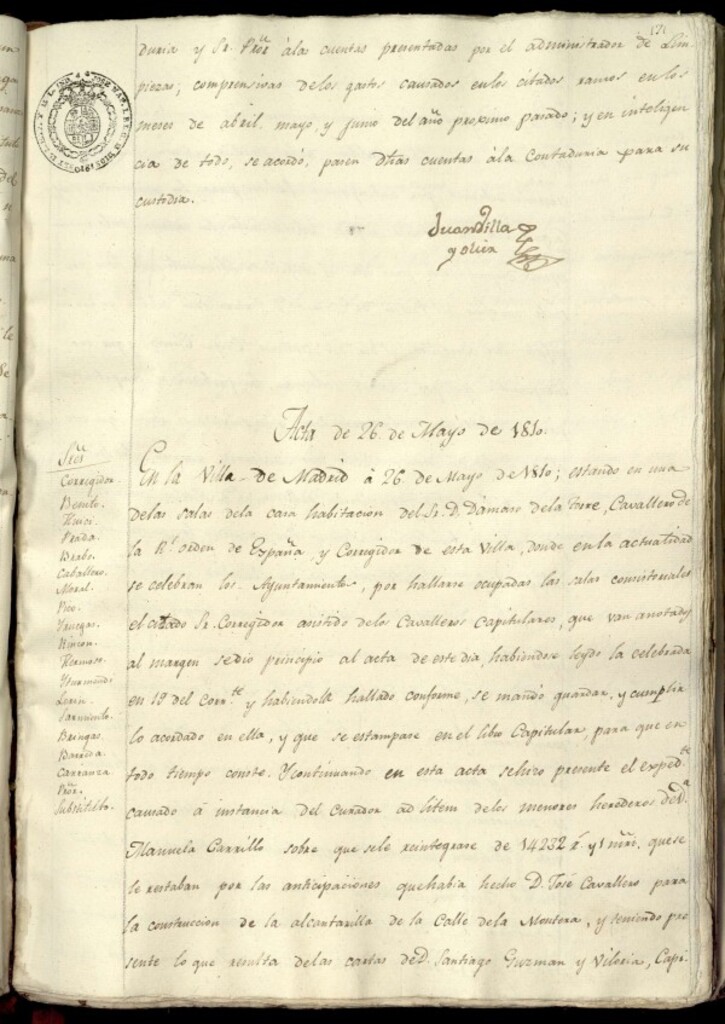 duria y Sr. Pror. àlas cuentas presentadas por el administrador de Lim-
piezas; comprensivas delos gastos causados enlos citados ramos en los
meses de abril, mayo, y junio del año proximo pasado; y en inteligen
cia de todo, se acordó, pasen dhas cuentas àla Contaduria para su
custodia.
Juan Villa
y olier
Acta de 26 de Mayo de 1810.
Sres.
Corregidor.
Benito.
Prada.
Caballero.
Moral.
Pico.
Rincon.
Hermoso.
Yturmendi
Leon.
Sarmiento.
Bringas.
Barreda.
Carranza.
Pror.
Substituto.
En la Villa de Madrid à 26 de Mayo de 1810; estando en una
delas salas dela casa habitacion del Sr. D. Damaso dela Torre, Cavallero de
la Rl. orden de España, y Corregidor de esta Villa, donde en la actualidad
se celebran los Ayuntamientos, por hallarse ocupadas las salas consistoriales
el citado Sr. Corregidor asistido delos Cavalleros Capitulares, que van anotados
al margen sedio principio al acta de este dia, habiendose leydo la celebrada
en 19 del corrte. y habiendola hallado conforme, se mandó guardar, y cumplir
lo acordado en ella, y que se estampase en el libro Capitular, para que en
todo tiempo conste. Y continuando en esta acta sehizo presente el expedte.
causado à instancia del curador ad litem delos menores herederos de Da.
Manuela Carrillo sobre que sele reintegrase de 14232 rs. y 1 mrs. quese
le restaban por las anticipaciones quehabia hecho D. José Cavallero para
la construccion de la alcantarilla de la Calle dela Montera, y teniendo pre
sente lo que resulta delas cartas de D. Santiago Guzman y Viloria, Capi-